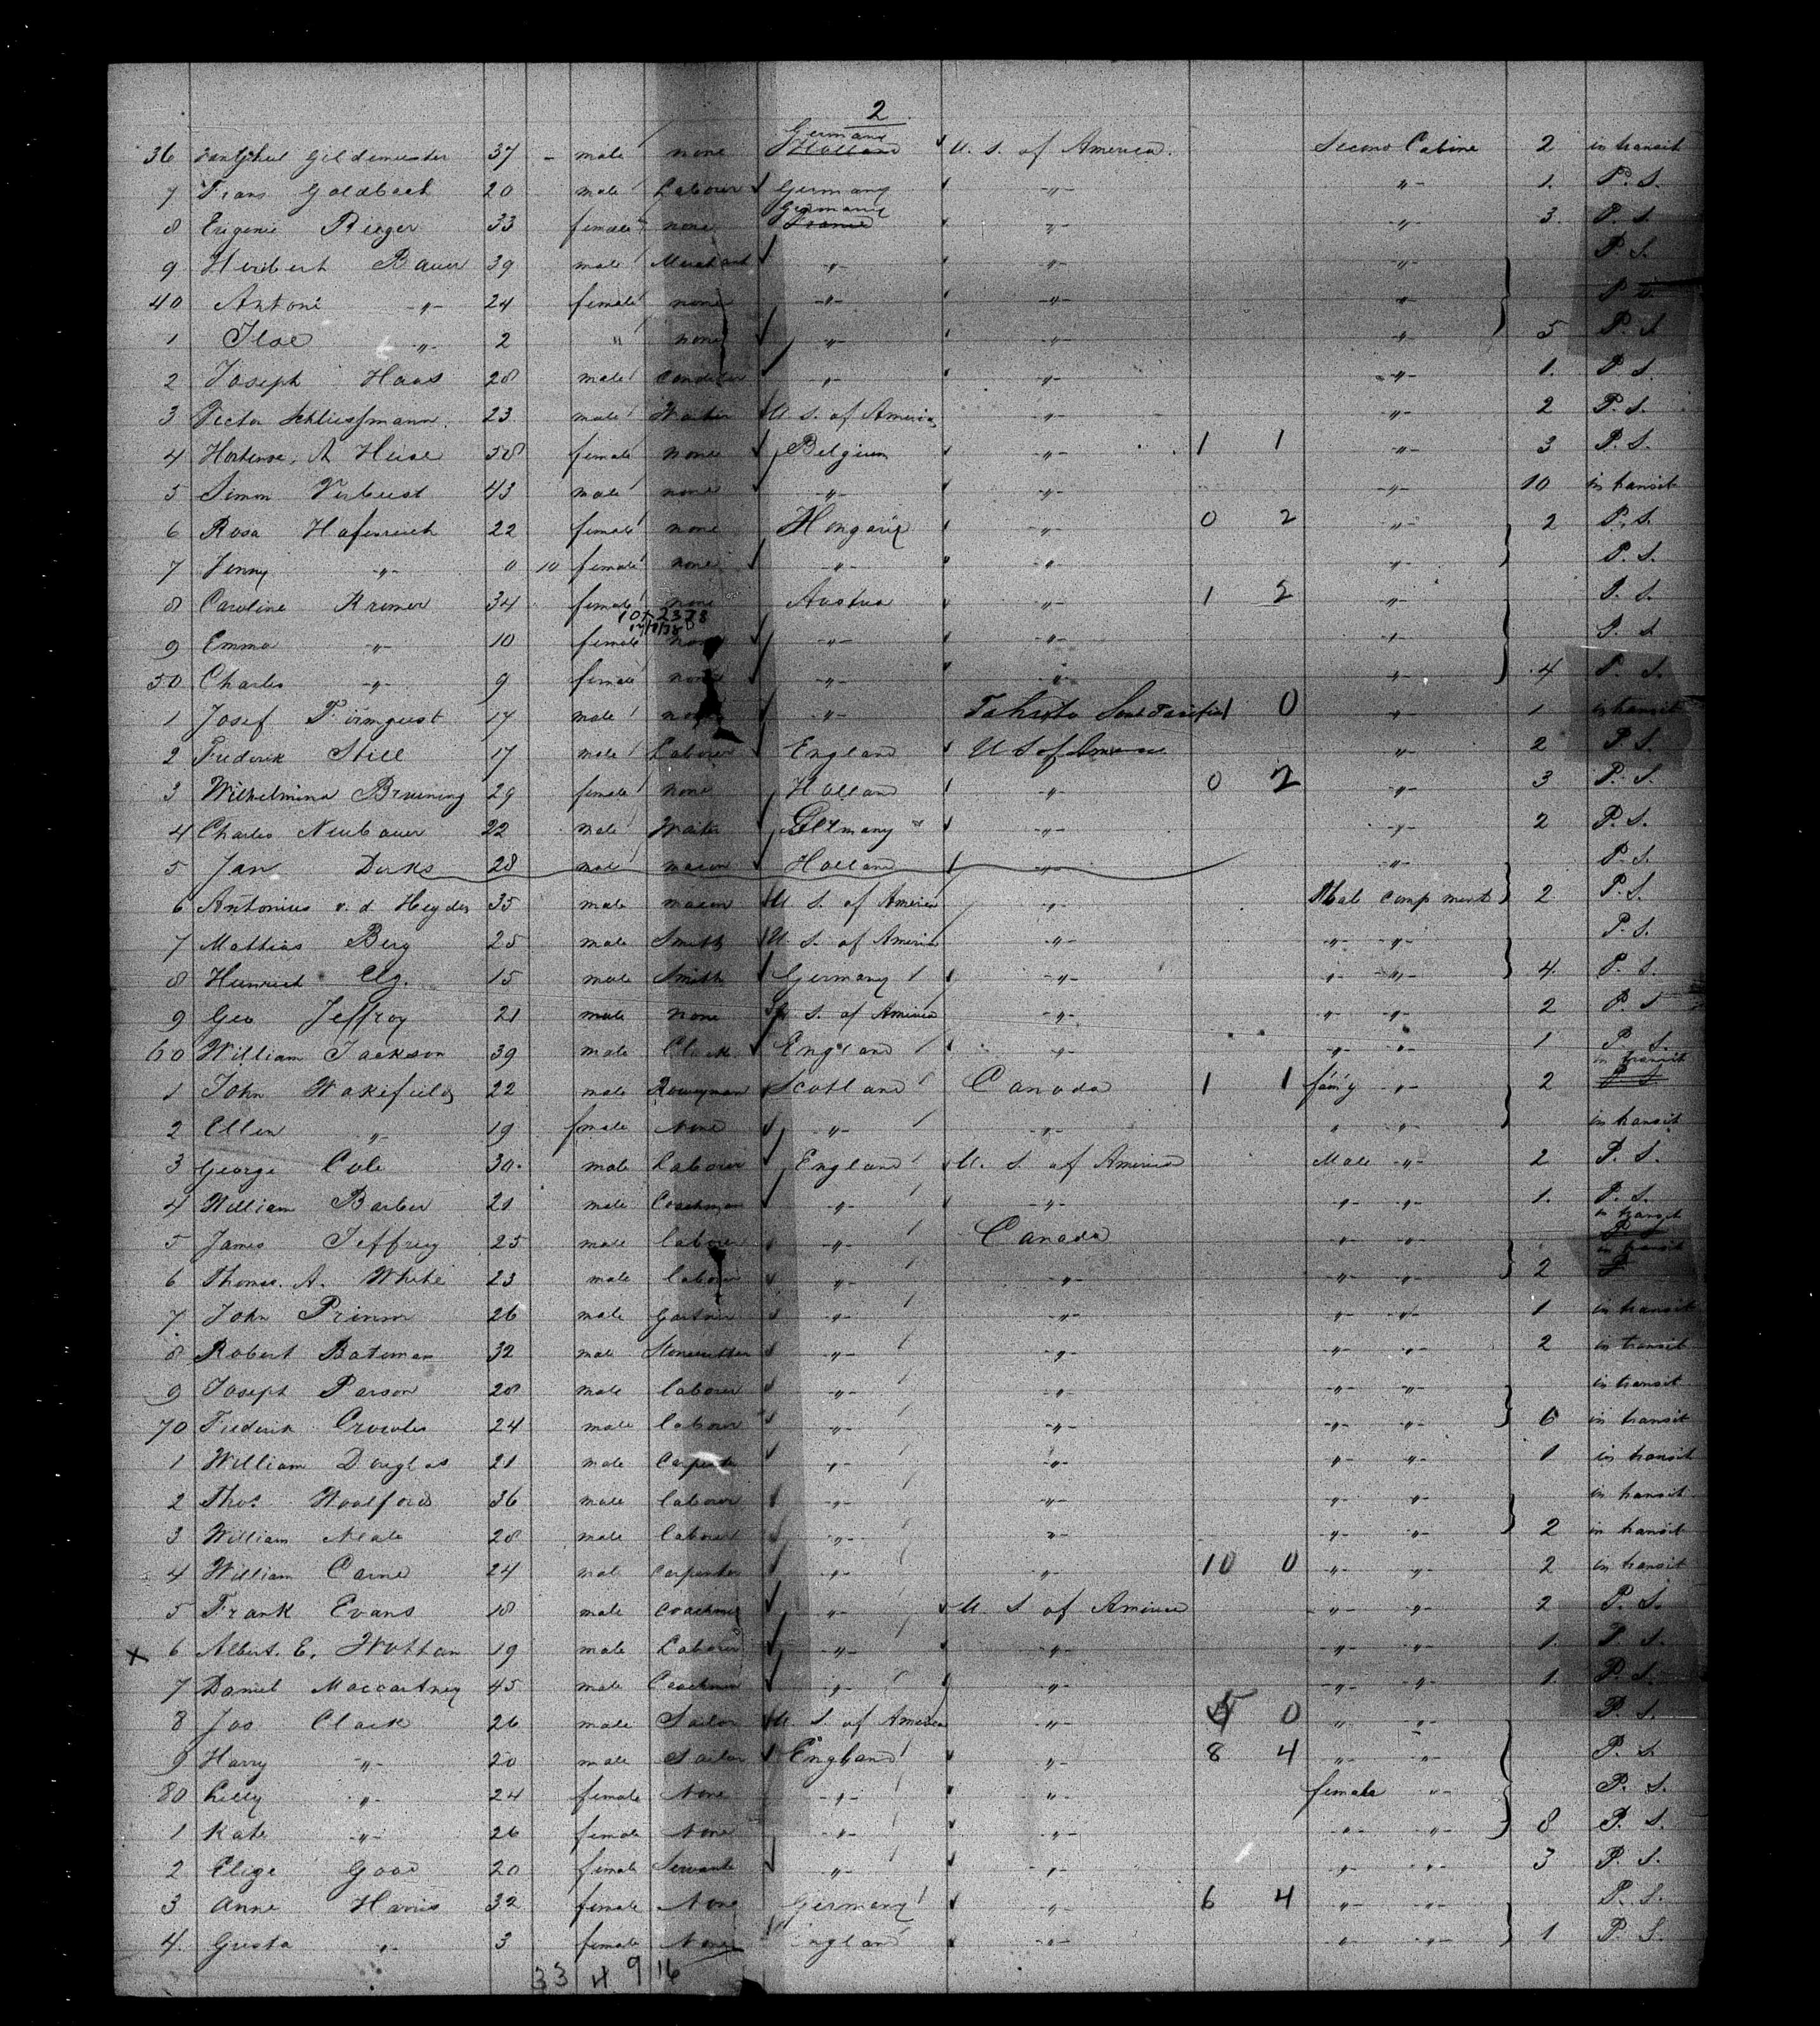 2
36 Gildemeester 37 - male none Germany Holland U. S. of America. Second Cabine 2 in transit
7 Frans Goldbach 20 male Labourer Germany -"- -"- 1. P. S.
8 Eugenie Rieger 33 female none Germany France -"- -"- 3. P. S.
9 Heribert Bauer 39 male Merchant -"- -"- -"- P. S.
40 Antoni -"- 24 female none -"- -"- -"- P. S.
1 Ilse -"- 2 " none -"- -"- -"- 5 P. S.
2 Joseph Haas 28 male -"- -"- -"- 1. P. S.
3 Victor Schliessmann. 23 male Waiter U S. of America -"- -"- 2 P. S.
4 Hortense. A Heise 58 female none Belgium -"- 1 1 -"- 3 P. S.
5 Simon Verbeist 43 male none -"- -"- -"- 10 in transit
6 Rosa Hafenreich 22 female none Hongarie -"- 0 2 -"- 2 P. S.
7 Jenny -"- 0 10 female none -"- -"- -"- P. S.
8 Caroline Kremer 34 female none Austria -"- 1 2 -"- P. S.
9 Emma -"- 10 female none -"- -"- -"- P. S.
50 Charles -"- 9 female none -"- -"- -"- 4 P. S.
1 Josef 17 male none -"- 1 0 -"- 1 in transit
2 Frederik Still 17 male Laborer England U S of America -"- 2 P S.
3 Wilhelmina Bruining 29 female none Holland -"- 0 2 -"- 3 P. S.
4 Charles Neubauer 22 male Waiter Germany -"- -"- 2 P. S.
5 Jan Dirks 28 male mason Holland -"- -"- P. S.
6 Antonius v. d. Heyden 35 male mason U S. of America -"- Male compment 2 P. S.
7 Mathias Berg 25 male Smith U. S. of America -"- -"- -"- P. S.
8 Heinrich Elz. 15 male Smith Germany -"- -"- -"- 4. P. S.
9 Geo Jeffroy 21 male none U. S. of America -"- -"- -"- 2 P. S
60 William Jackson 39 male Clerk England -"- -"- -"- 1 P. S.
1 John Wakefield 22 male Scotland Canada 1 1 family -"- 2 in transit P S
2 Ellen -"- 19 female None -"- -"- " -"- in transit
3 George Cole 30. male Laborer England U. S. of America Male -"- 2 P. S.
4 William Barber 21 male Coachman -"- -"- -"- -"- 1. P. S.
5 James Jeffrey 25 male laborer -"- Canada -"- -"- in transit P S
6 Thomas. A. White 23 male laborer -"- -"- -"- -"- 2 in transit
7 John Prinn 26 male -"- -"- -"- -"- 1 in transit
8 Robert Bateman 32 male Stonecutter -"- -"- -"- -"- 2 in transit
9 Joseph Parson 28 male laborer -"- -"- -"- -"- in transit
70 Frederik Crowles 24 male laborer -"- -"- -"- -"- 6 in transit
1 William Douglas 21 male Carpenter -"- -"- -"- -"- 1 in transit
2 Thos. Woolford 36 male laborer -"- -"- -"- -"- in transit
3 William Neale 28 male laborer -"- -"- -"- -"- 2 in transit
4 William Carne 24 male Carpenter -"- -"- 10 0 -"- -"- 2 in transit
5 Frank Evans 18 male Coachman -"- U S of America -"- -"- 2 P. S.
x 6 Albert. E. Wotham 19 male Laborer -"- -"- -"- -"- 1. P S.
7 Daniel Maccartney 45 male Coachman -"- -"- -"- -"- 1. P. S.
8 Jas Clark 26 male Sailor U S. of America -"- 5 0 -"- -"- P. S.
9 Harry -"- 20 male Sailor England -"- 8 4 -"- -"- P. S.
80 Lilly -"- 24 female None -"- -"- female -"- P. S.
1 Kate -"- 26 female None -"- -"- -"- -"- 8 P. S.
2 Elize Good 20 female Servante -"- -"- -"- -"- 3 P. S.
3 Anne Harris 32 female None Germany -"- 6 4 -"- -"- P. S.
4. Gusta -"- 3 female None England -"- -"- -"- 1 P. S.
33 4 9 16